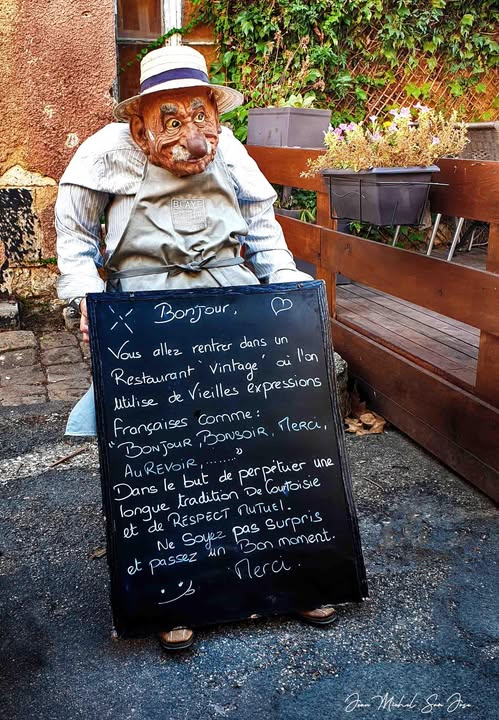 BLAYE
Bonjour,
Vous allez rentrer dans un
Restaurant 'Vintage' où l'on
utilise de Vieilles expressions
françaises comme:
"BONJOUR, BONSOIR, MERCI,
AU REVOIR, ........"
Dans le but de perpétuer une
longue tradition De Courtoisie
et de RESPECT MUTUEL.
Ne Soyez pas surpris
et passez un Bon moment.
Merci.
Jean Michel San Jose